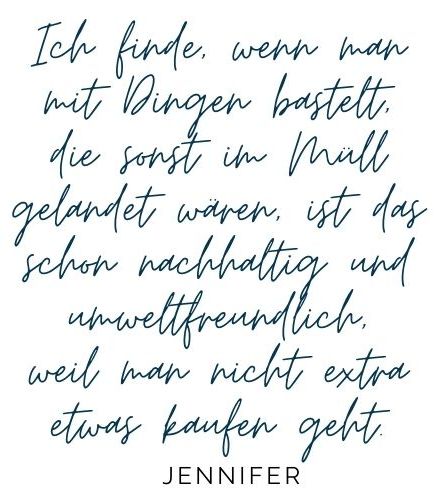 Ich finde, wenn man
mit Dingen bastelt,
die sonst im Müll
gelandet wären, ist das
schon nachhaltig und
umweltfreundlich,
weil man nicht extra
etwas kaufen geht.
JENNIFER